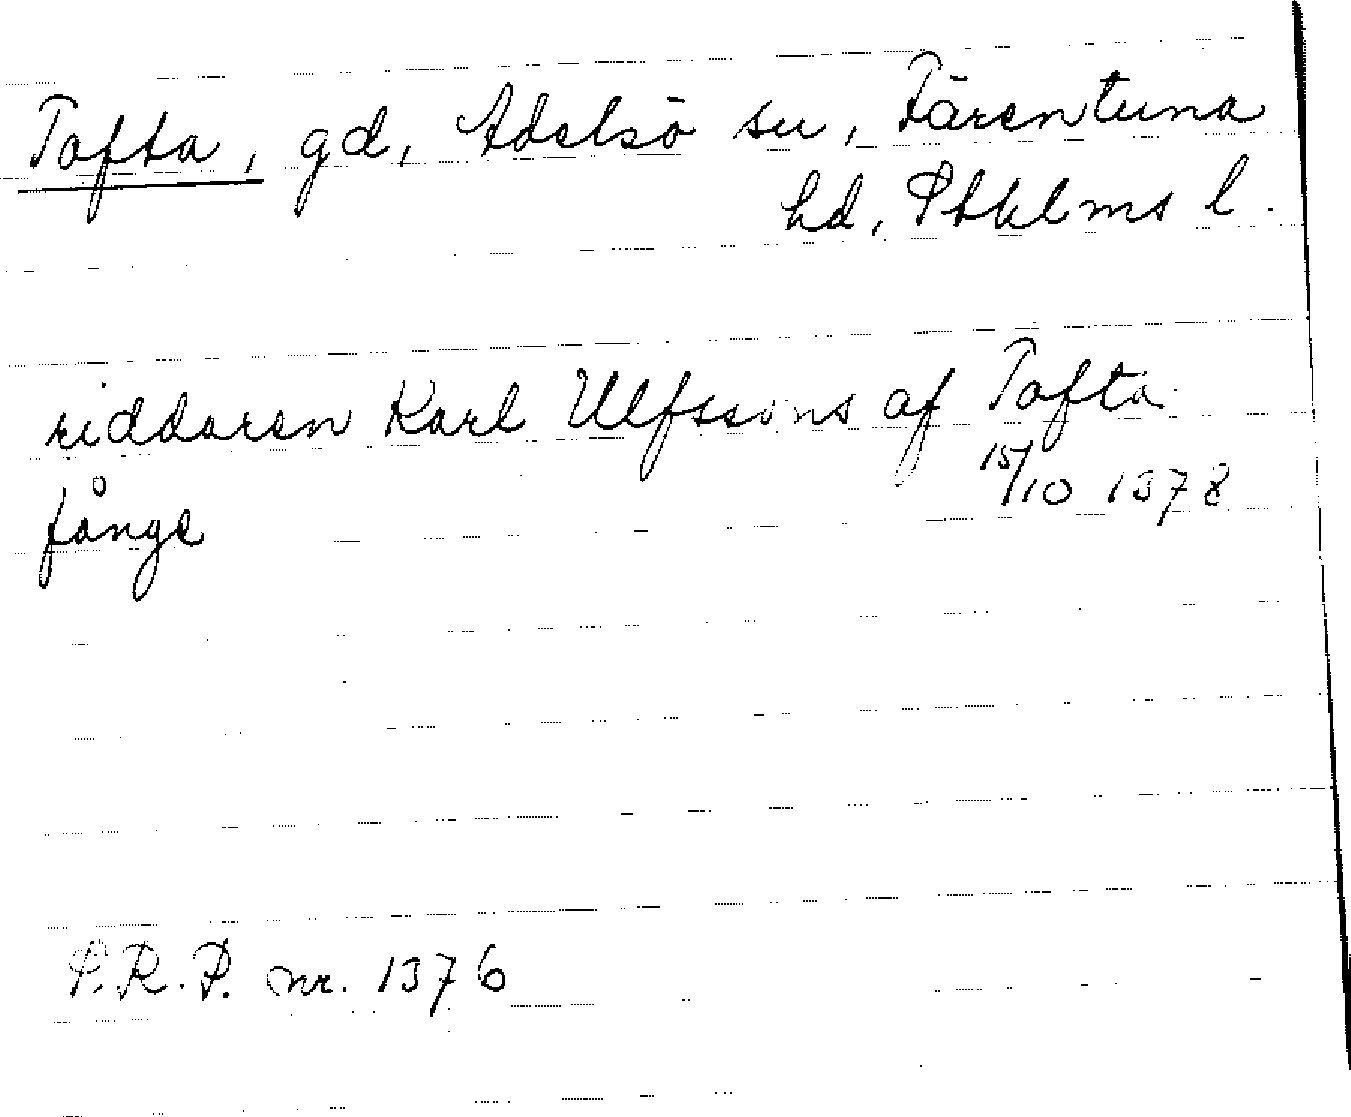 Tofta, gd, Adelsö sn, Färentuna
hd, Sthlms l.
riddaren Karl Ulfssons af Tofta
fånge 15/10 1378
S.R.P. nr. 1376